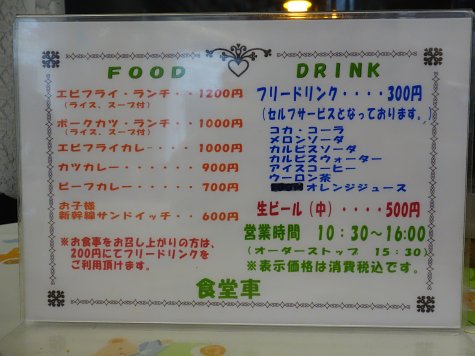 FOOD
エビフライ・ランチ・・1200円
(ライス、スープ付)
ポークカツ・ランチ・・1000円
(ライス、スープ付)
エビフライカレー・・・・1000円
カツカレー・・・・・・900円
ビーフカレー・・・・・700円
お子様
新幹線サンドイッチ・・600円
※お食事をお召し上がりの方は、
200円にてフリードリンクを
ご利用頂けます。
DRINK
フリードリンク・・・・300円
(セルフサービスとなっております。)
コカ・コーラ
メロンソーダ
カルピスソーダ
カルピスウォーター
アイスコーヒー
ウーロン茶
オレンジジュース
生ビール(中)・・・・500円
営業時間 10:30~16:00
(オーダーストップ 15:30)
※表示価格は消費税込です。
食堂車